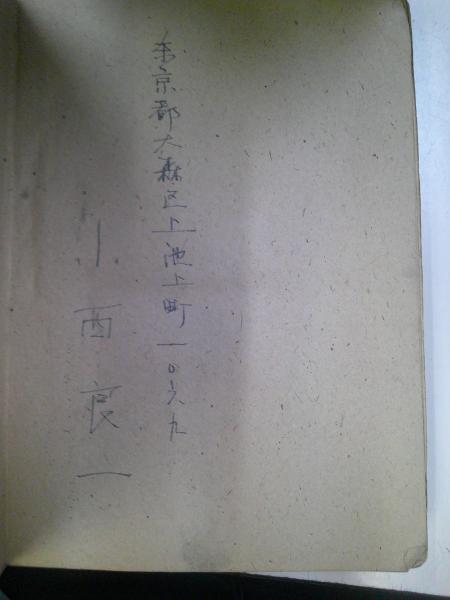 東京都大森区上池上町一〇六九
小西良一